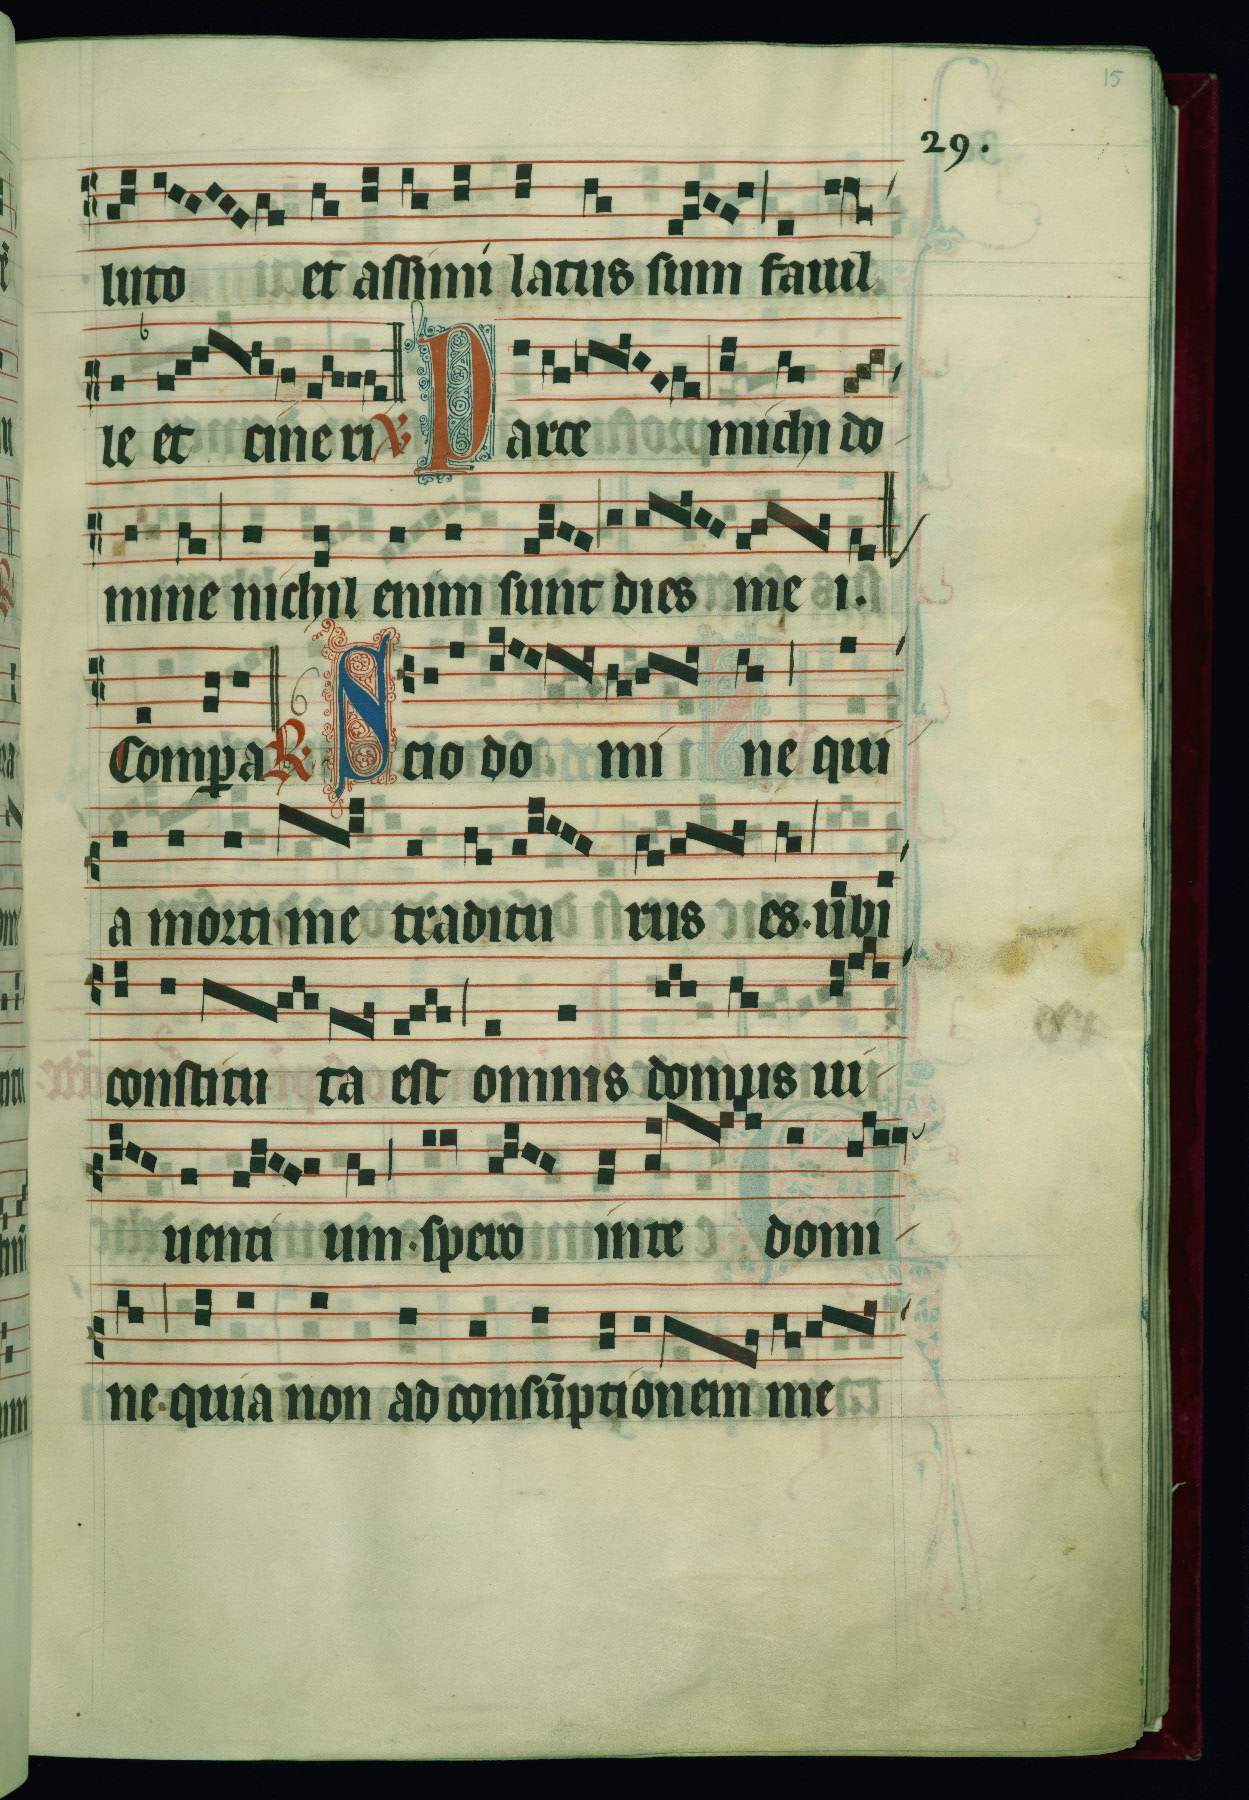 15
29.
luto et assimi latus sum fauil
le et cine ri ℣ Parce michi do
mine nichil enim sunt dies me i.
Compa ℟ Scio do mi ne qui
a morti me traditu rus es. ubi
constitu ta est omnis domus ui
uenti um. spero in te domi
ne. quia non ad consūptionem me